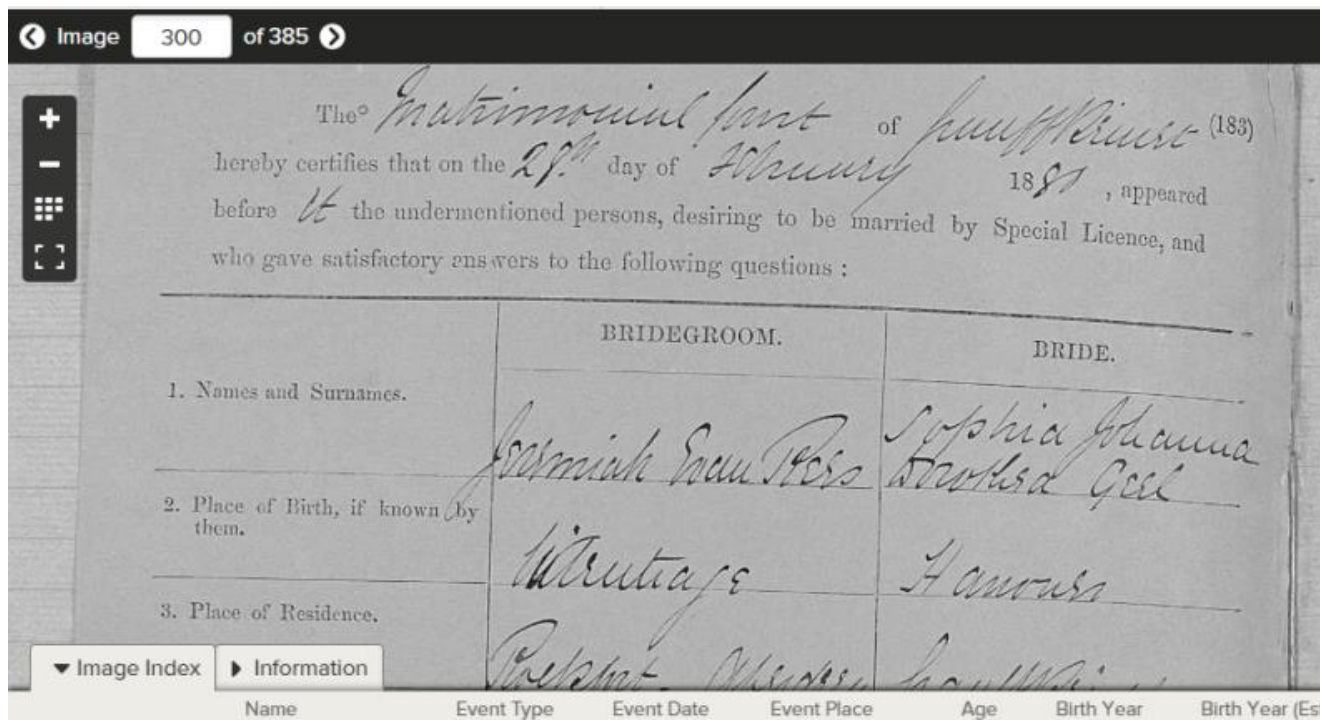 Image 300 of 385
The Matrimonial Court of Graaff Reinet (183)
hereby certifies that on the 28th day of February 188 , appeared
before It the undermentioned persons, desiring to be married by Special Licence, and
who gave satisfactory answers to the following questions :
BRIDEGROOM. BRIDE.
1. Names and Surnames.
Jeremiah Evan Rees Sophia Johanna
Dorothea Geel
2. Place of Birth, if known by
them.
Uitenhage Hanover
3. Place of Residence.
Aberdeen Graaff Reinet
Image Index Information
Name Event Type Event Date Event Place Age Birth Year Birth Year (Es